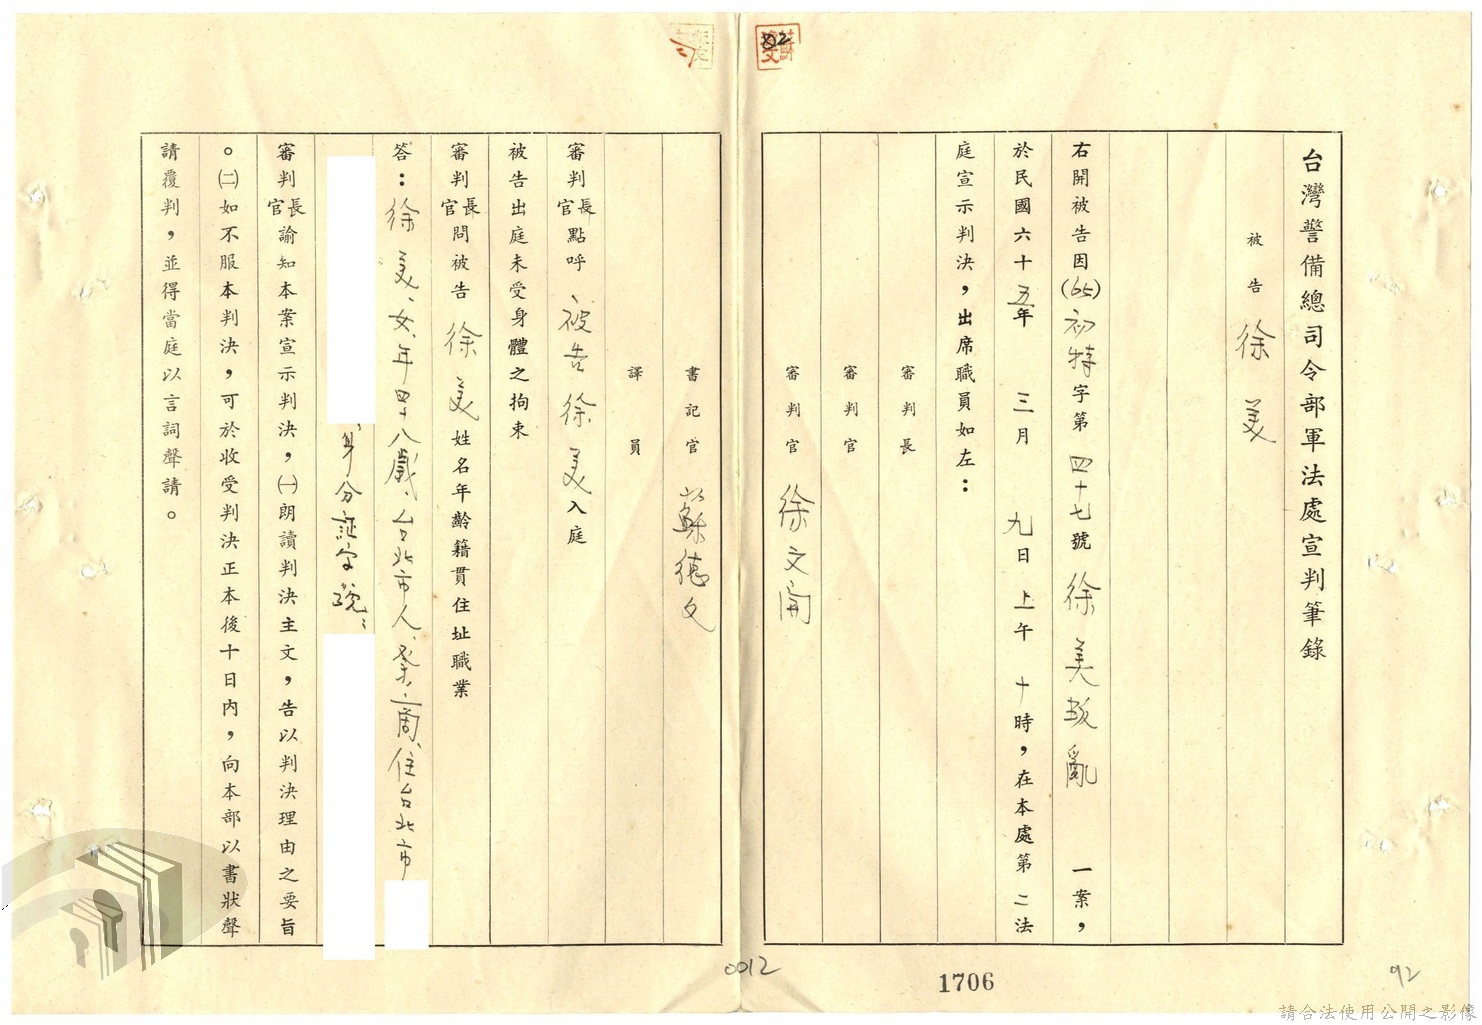 台灣警備總司令部軍法處宣判筆錄
被告 徐美
右開被告因(65)初特字第四十七號徐美叛亂一案，
於民國六十五年三月九日上午十時，在本處第二法
庭宣示判決，出席職員如左：
審判長
審判官
審判官 徐文開
書記官 蘇德文
譯員
審判官長點呼 被告徐美入庭
被告出庭未受身體之拘束
審判官長問被告徐美姓名年齡籍貫住址職業
答：徐美、女、年四十八歲、台北市人、業商、住台北市
、身分証字號：
審判官長諭知本案宣示判決，㈠朗讀判決主文，告以判決理由之要旨
。㈡如不服本判決，可於收受判決正本後十日內，向本部以書狀聲
請覆判，並得當庭以言詞聲請。
0012
1706
92
請合法使用公開之影像